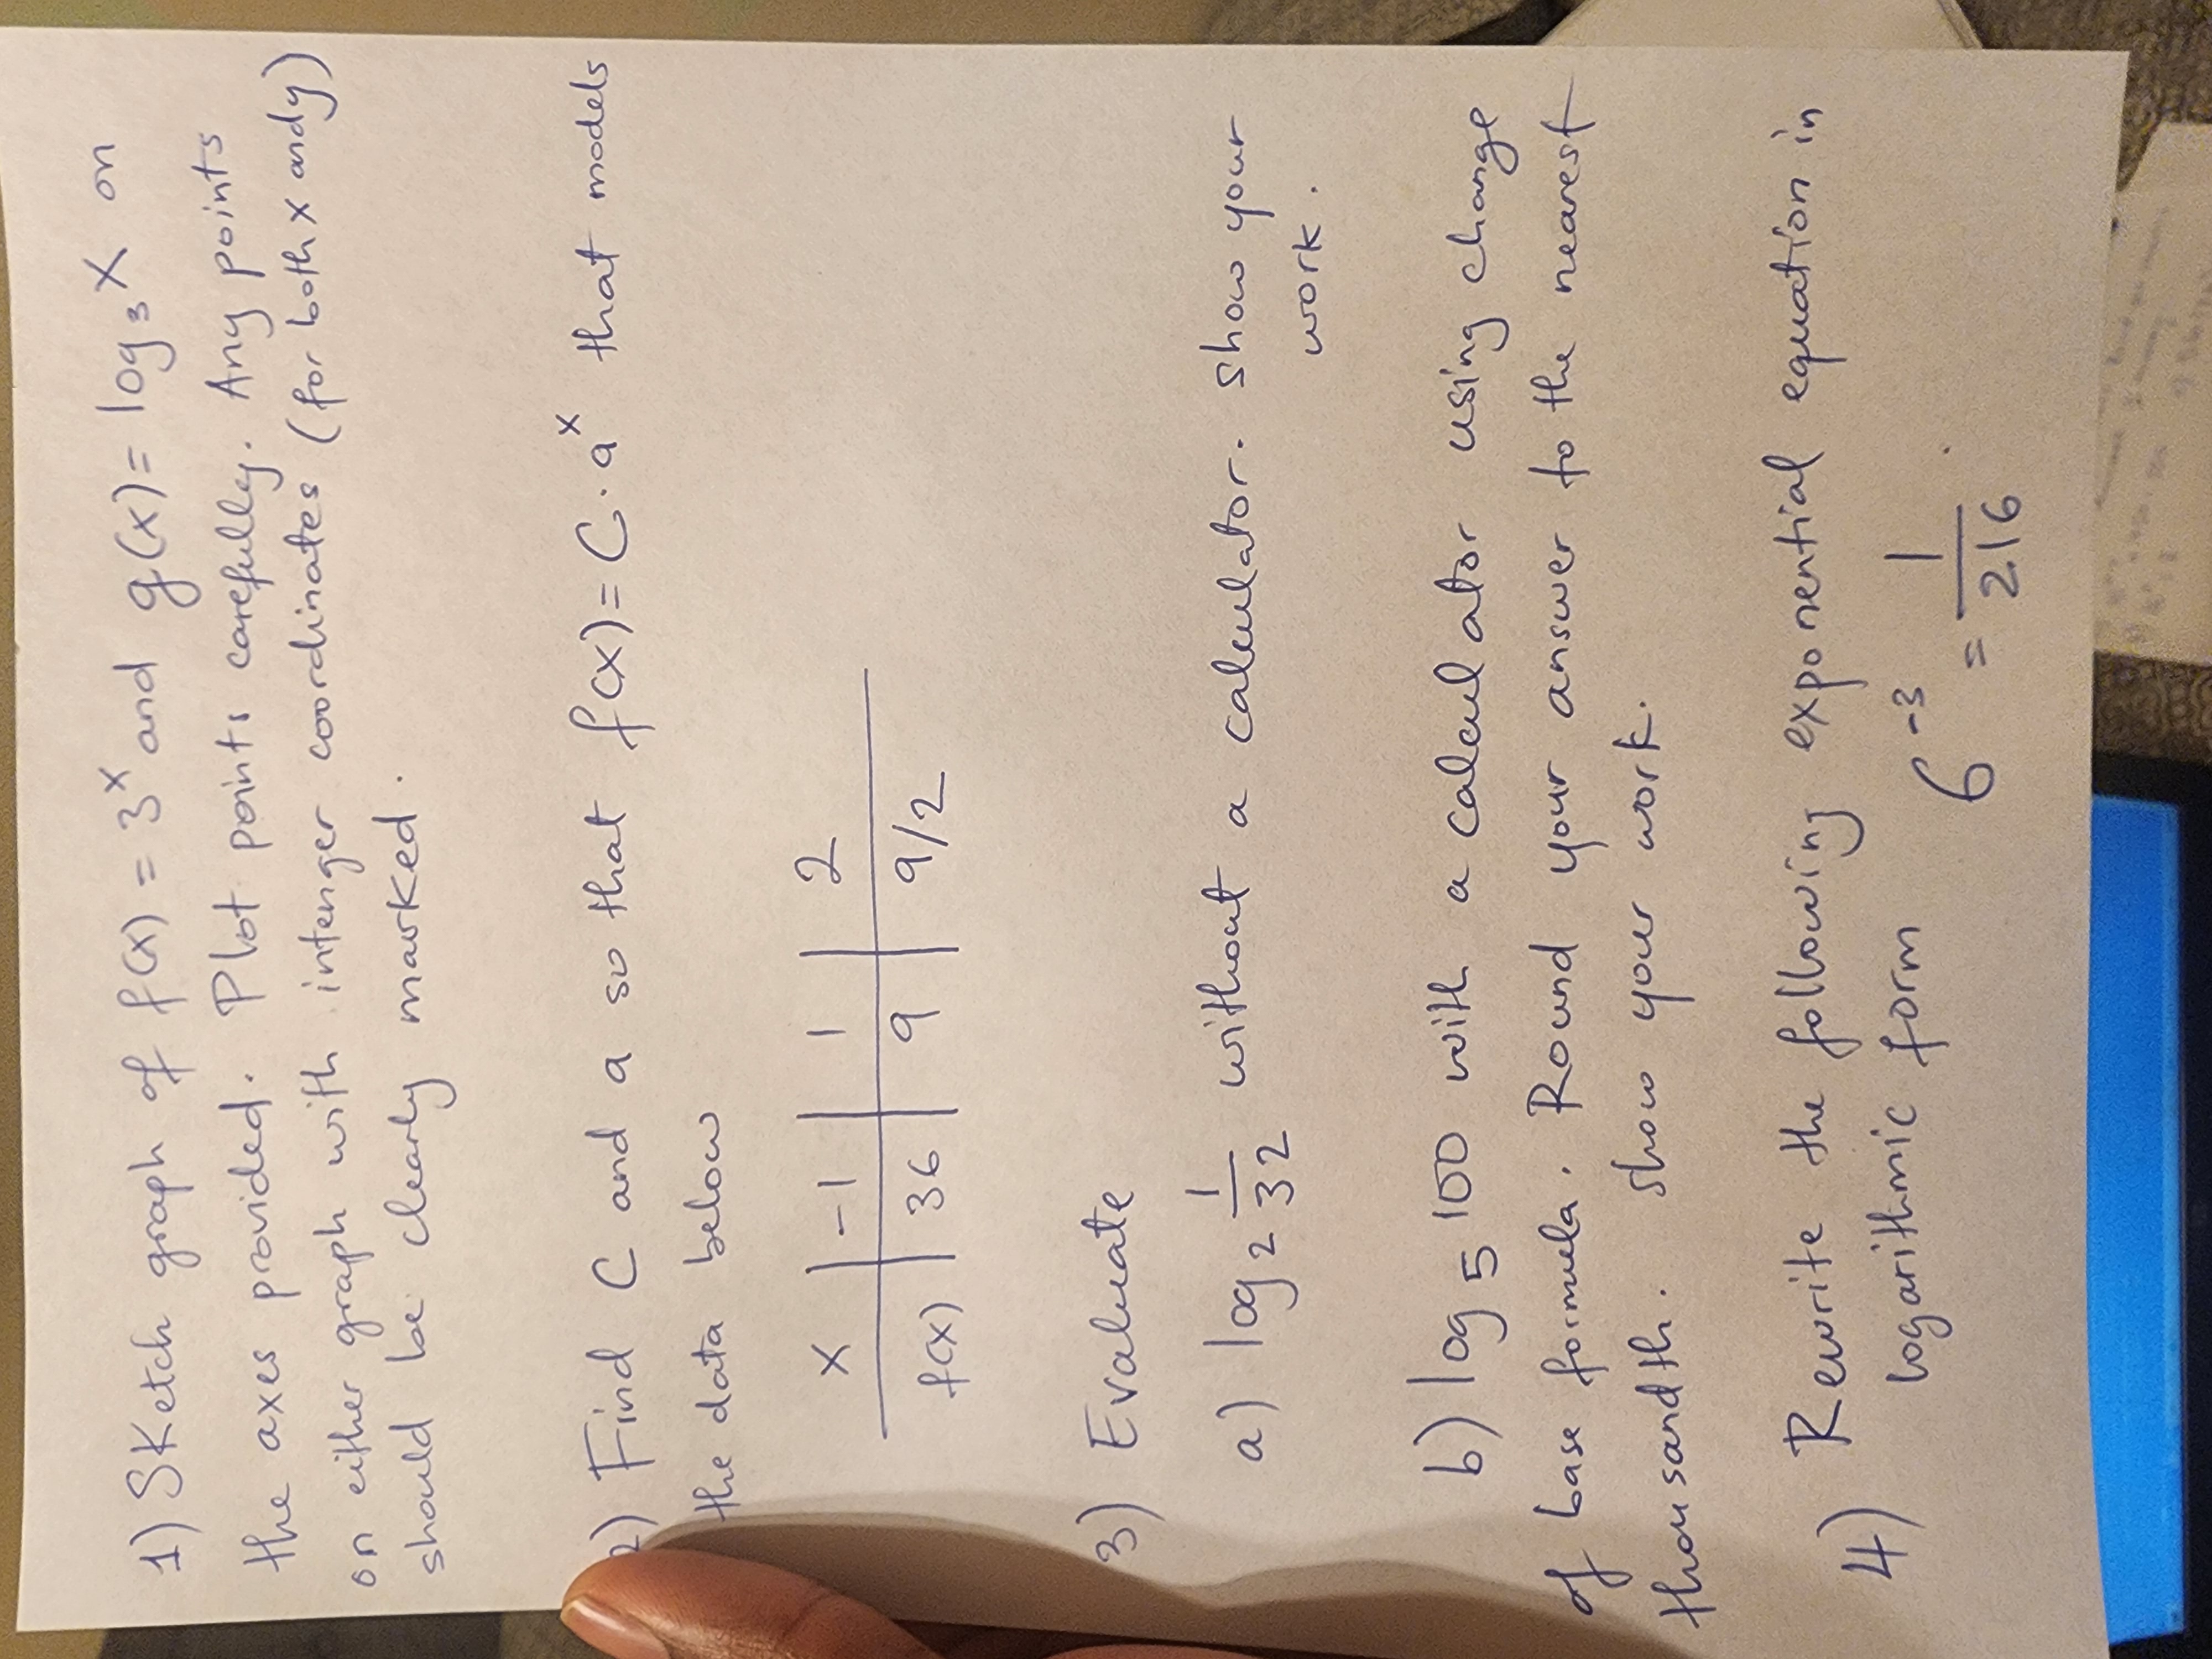 1) Sketch graph of f(x) = 3^x and g(x) = log₃ x on
the axes provided. Plot points carefully. Any points
on either graph with intenger coordinates (for both x and y)
should be clearly marked.
2) Find C and a so that f(x) = C · a^x that models
the data below
x | -1 | 1 | 2
f(x) | 36 | 9 | 9/2
3) Evaluate
a) log₂ 1/32 without a calculator. show your
work.
b) log₅ 100 with a calculator using change
of base formula. Round your answer to the nearest
thousandth. show your work.
4) Rewrite the following exponential equation in
logarithmic form 6^-3 = 1/216.